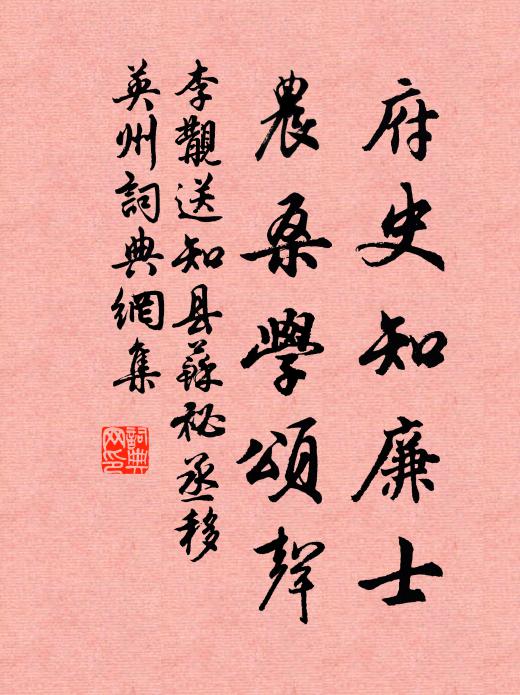 府史知廉士
農桑學頌聲
李覯送知县蘇祕丞移
英州詞典網集
詞典网印